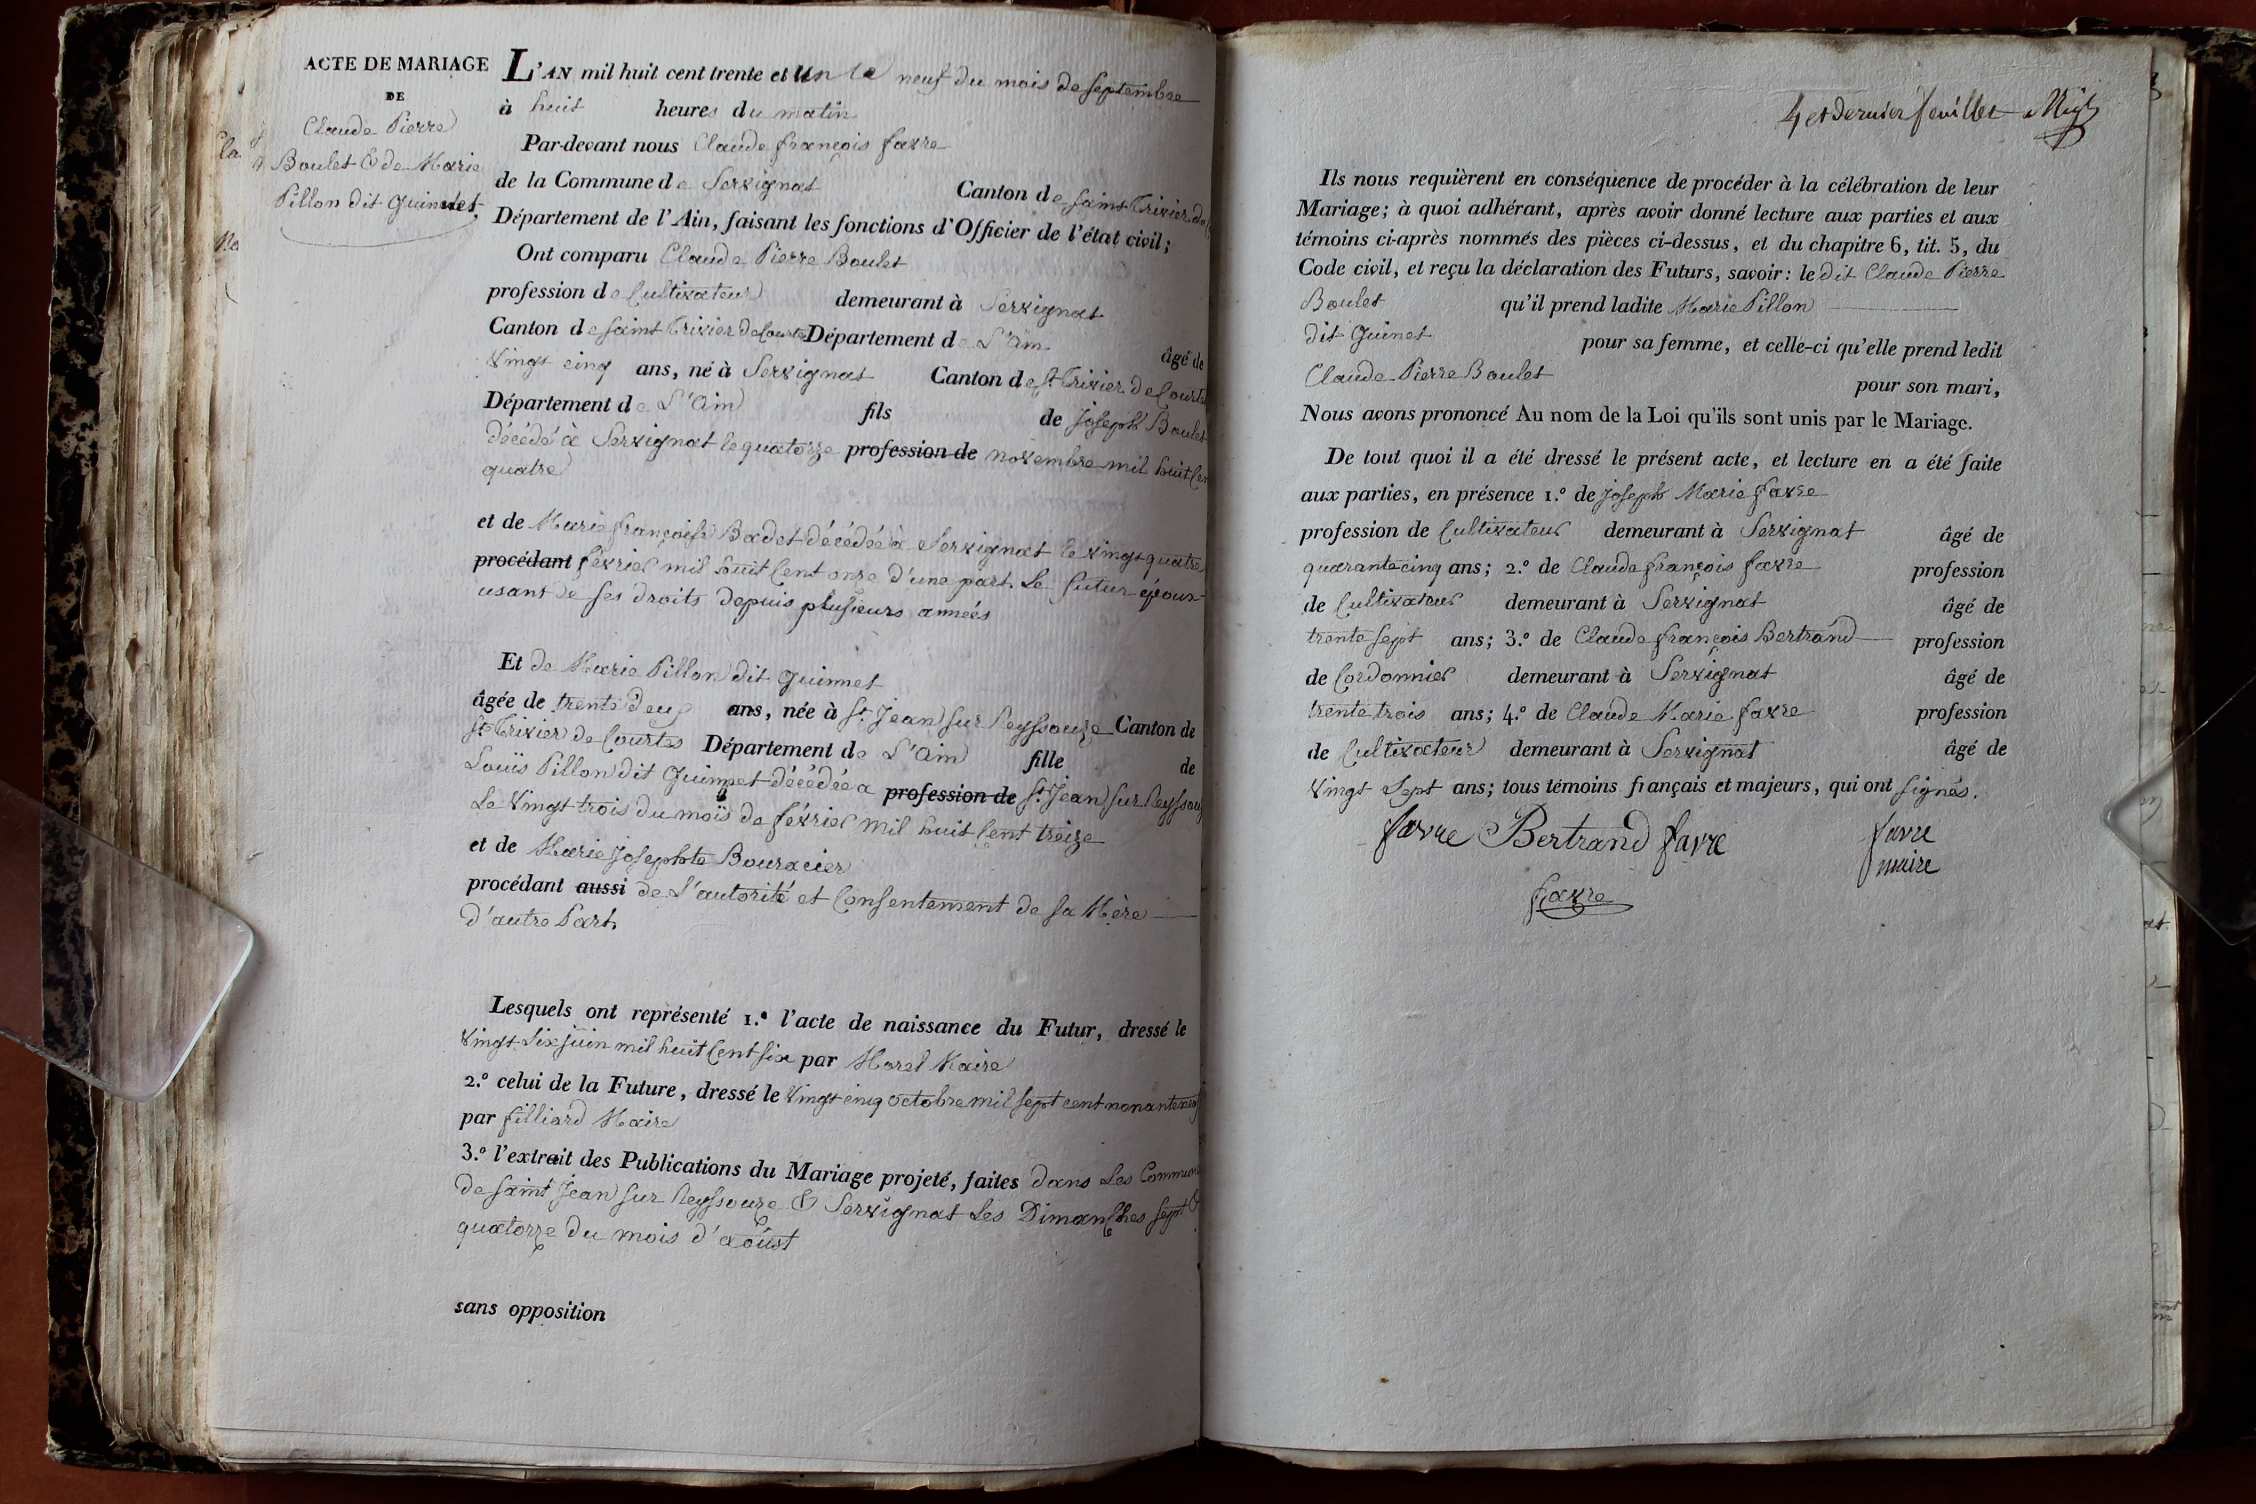 ACTE DE MARIAGE
DE
Claude Pierre
Boulet & de Marie
Pillon dit Guinnet
L'AN mil huit cent trente et un le neuf du mois de Septembre
à huit heures du matin
Par-devant nous Claude françois favre
de la Commune de Servignat Canton de Saint Trivier de
Département de l'Ain, faisant les fonctions d'Officier de l'état civil;
Ont comparu Claude Pierre Boulet
profession de Cultivateur demeurant à Servignat
Canton de Saint Trivier de Courtes Département de L'Ain âgé de
Vingt cinq ans, né à Servignat Canton de St Trivier de Courtes
Département de L'Ain fils de Joseph Boulet
décédé à Servignat le quatorze profession de novembre mil huit Cen
quatre
et de Marie françoise Badet décédée à Servignat le vingt quatre
procédant février mil huit Cent onze d'une part. Le futur époux
usant de ses droits depuis plusieurs années
Et de Marie Pillon dit Guinnet
âgée de trente deux ans, née à St Jean sur Reyssouze Canton de
St Trivier de Courtes Département de L'Ain fille de
Louis Pillon dit Guinnet décédée a profession de St Jean sur Reyssouz
Le Vingt trois du mois de février mil huit Cent treize
et de Marie Josephte Bouracier
procédant aussi de L'autorité et Consentement de sa Mère
d'autre Part.
Lesquels ont représenté 1.º l'acte de naissance du Futur, dressé le
Vingt Six juin mil huit Cent six par Morel Maire
2.º celui de la Future, dressé le Vingt cinq octobre mil sept cent nonante
par filliard Maire
3.º l'extrait des Publications du Mariage projeté, faites dans Les Commun
de saint Jean sur Reyssouze & Servignat Les Dimanches sept &
quatorze du mois d'aoûst
sans opposition
4 et dernier feuillet
Ils nous requièrent en conséquence de procéder à la célébration de leur
Mariage; à quoi adhérant, après avoir donné lecture aux parties et aux
témoins ci-après nommés des pièces ci-dessus, et du chapitre 6, tit. 5, du
Code civil, et reçu la déclaration des Futurs, savoir: le dit Claude Pierre
Boulet qu'il prend ladite Marie Pillon
dit Guinet pour sa femme, et celle-ci qu'elle prend ledit
Claude Pierre Boulet pour son mari,
Nous avons prononcé Au nom de la Loi qu'ils sont unis par le Mariage.
De tout quoi il a été dressé le présent acte, et lecture en a été faite
aux parties, en présence 1.º de Joseph Marie favre
profession de Cultivateur demeurant à Servignat âgé de
quarante cinq ans; 2.º de Claude françois favre profession
de Cultivateur demeurant à Servignat âgé de
trente sept ans; 3.º de Claude françois Bertrand profession
de Cordonnier demeurant à Servignat âgé de
trente trois ans; 4.º de Claude Marie favre profession
de Cultivateur demeurant à Servignat âgé de
Vingt Sept ans; tous témoins français et majeurs, qui ont signés.
favre Bertrand favre favre
maire
favre